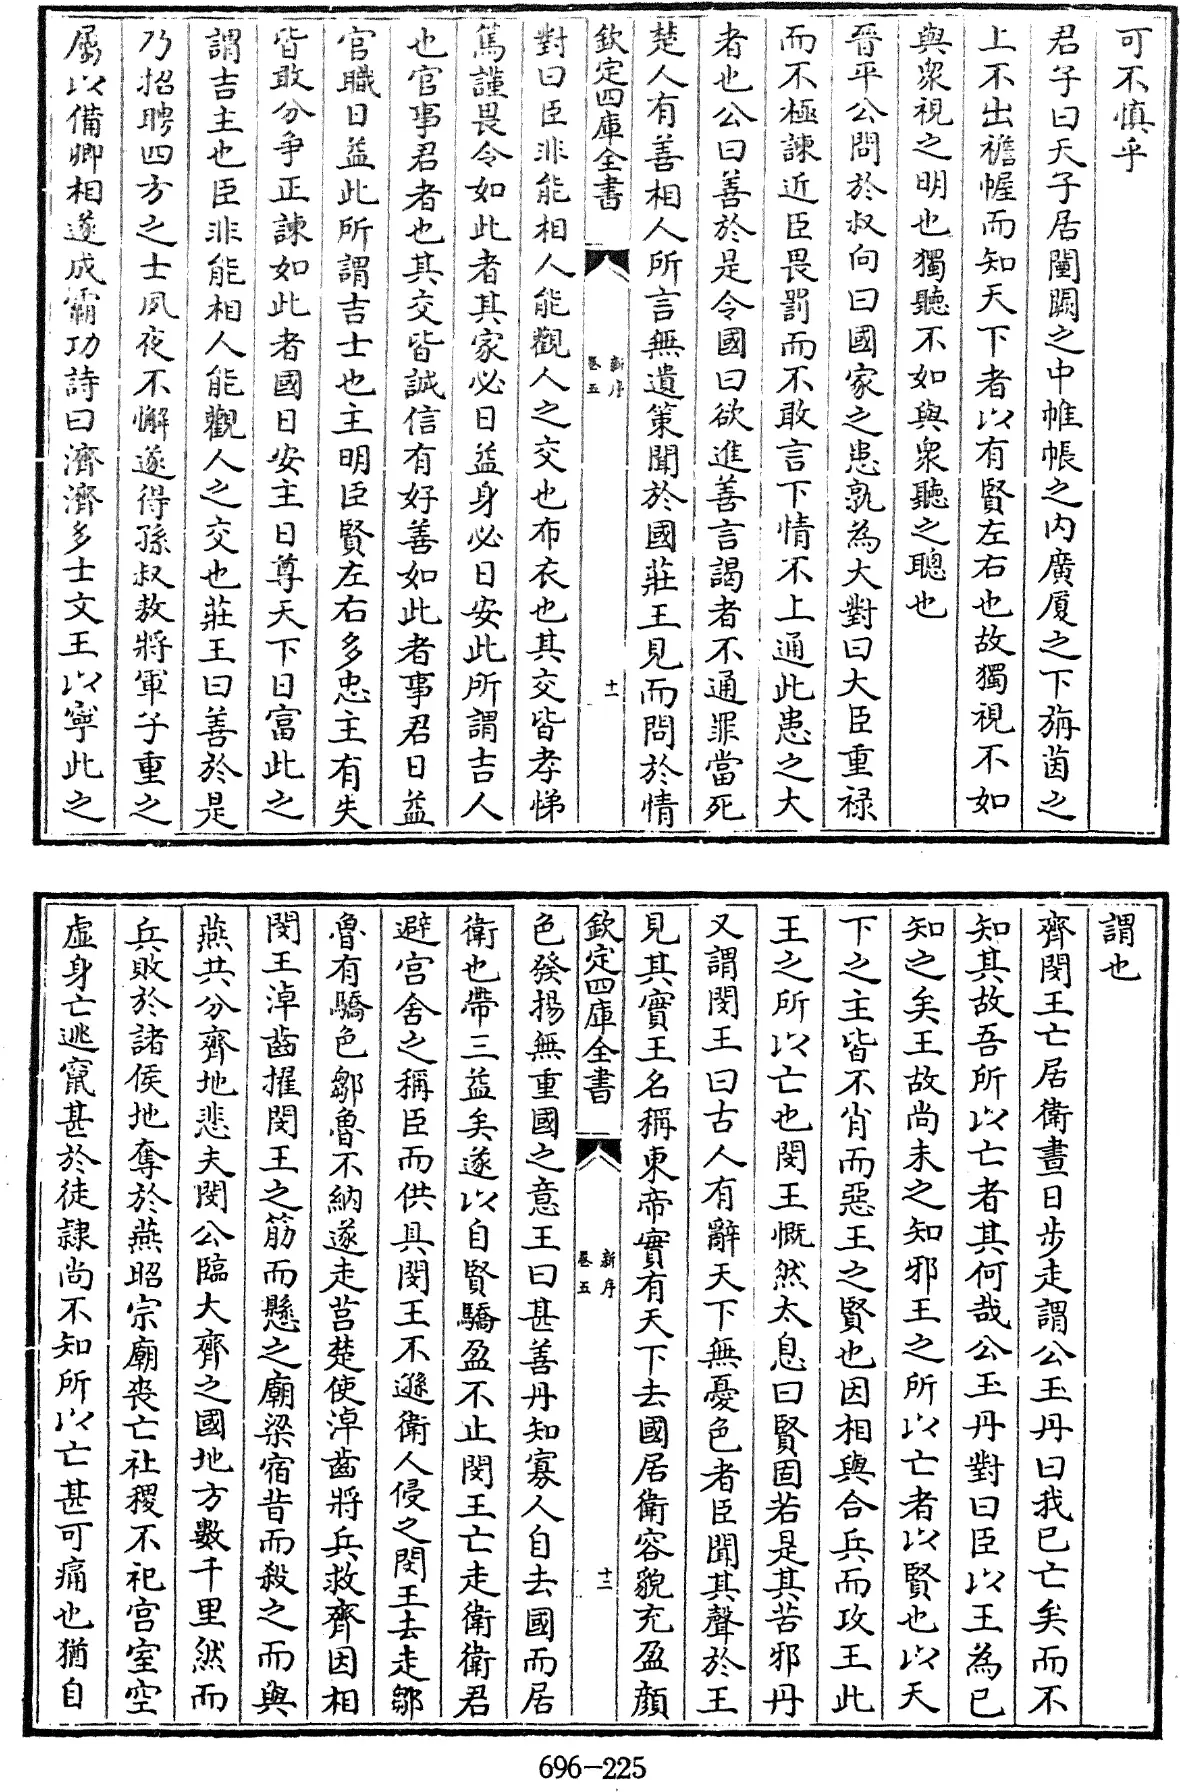 可不慎乎
君子曰天子居闉闕之中帷帳之内廣厦之下旃茵之
上不出襜幄而知天下者以有賢左右也故獨視不如
與衆視之明也獨聽不如與衆聽之聰也
晉平公問於叔向曰國家之患孰為大對曰大臣重禄
而不極諫近臣畏罰而不敢言下情不上通此患之大
者也公曰善於是令國曰欲進善言謁者不通罪當死
楚人有善相人所言無遺策聞於國莊王見而問於情
欽定四庫全書
新序
卷五
十一
對曰臣非能相人能觀人之交也布衣也其交皆孝悌
篤謹畏令如此者其家必日益身必日安此所謂吉人
也官事君者也其交皆誠信有好善如此者事君日益
官職日益此所謂吉士也主明臣賢左右多忠主有失
皆敢分争正諫如此者國日安主日尊天下日富此之
謂吉主也臣非能相人能觀人之交也莊王曰善於是
乃招聘四方之士夙夜不懈遂得孫叔敖將軍子重之
屬以備卿相遂成霸功詩曰濟濟多士文王以寧此之
謂也
齊閔王亡居衛晝日步走謂公玉丹曰我已亡矣而不
知其故吾所以亡者其何哉公玉丹對曰臣以王為已
知之矣王故尚未之知邪王之所以亡者以賢也以天
下之主皆不肖而惡王之賢也因相與合兵而攻王此
王之所以亡也閔王慨然太息曰賢固若是其苦邪丹
又謂閔王曰古人有辭天下無憂色者臣聞其聲於王
見其實王名稱東帝實有天下去國居衛容貌充盈顔
欽定四庫全書
新序
卷五
十二
色發揚無重國之意王曰甚善丹知寡人自去國而居
衛也帶三益矣遂以自賢驕盈不止閔王亡走衛衛君
避宫舍之稱臣而供具閔王不遜衛人侵之閔王去走鄒
魯有驕色鄒魯不納遂走莒楚使淖齒將兵救齊因相
閔王淖齒擢閔王之筋而懸之廟梁宿昔而殺之而與
燕共分齊地悲夫閔公臨大齊之國地方數千里然而
兵敗於諸侯地奪於燕昭宗廟喪亡社稷不祀宫室空
虚身亡逃竄甚於徒隸尚不知所以亡甚可痛也猶自
696-225